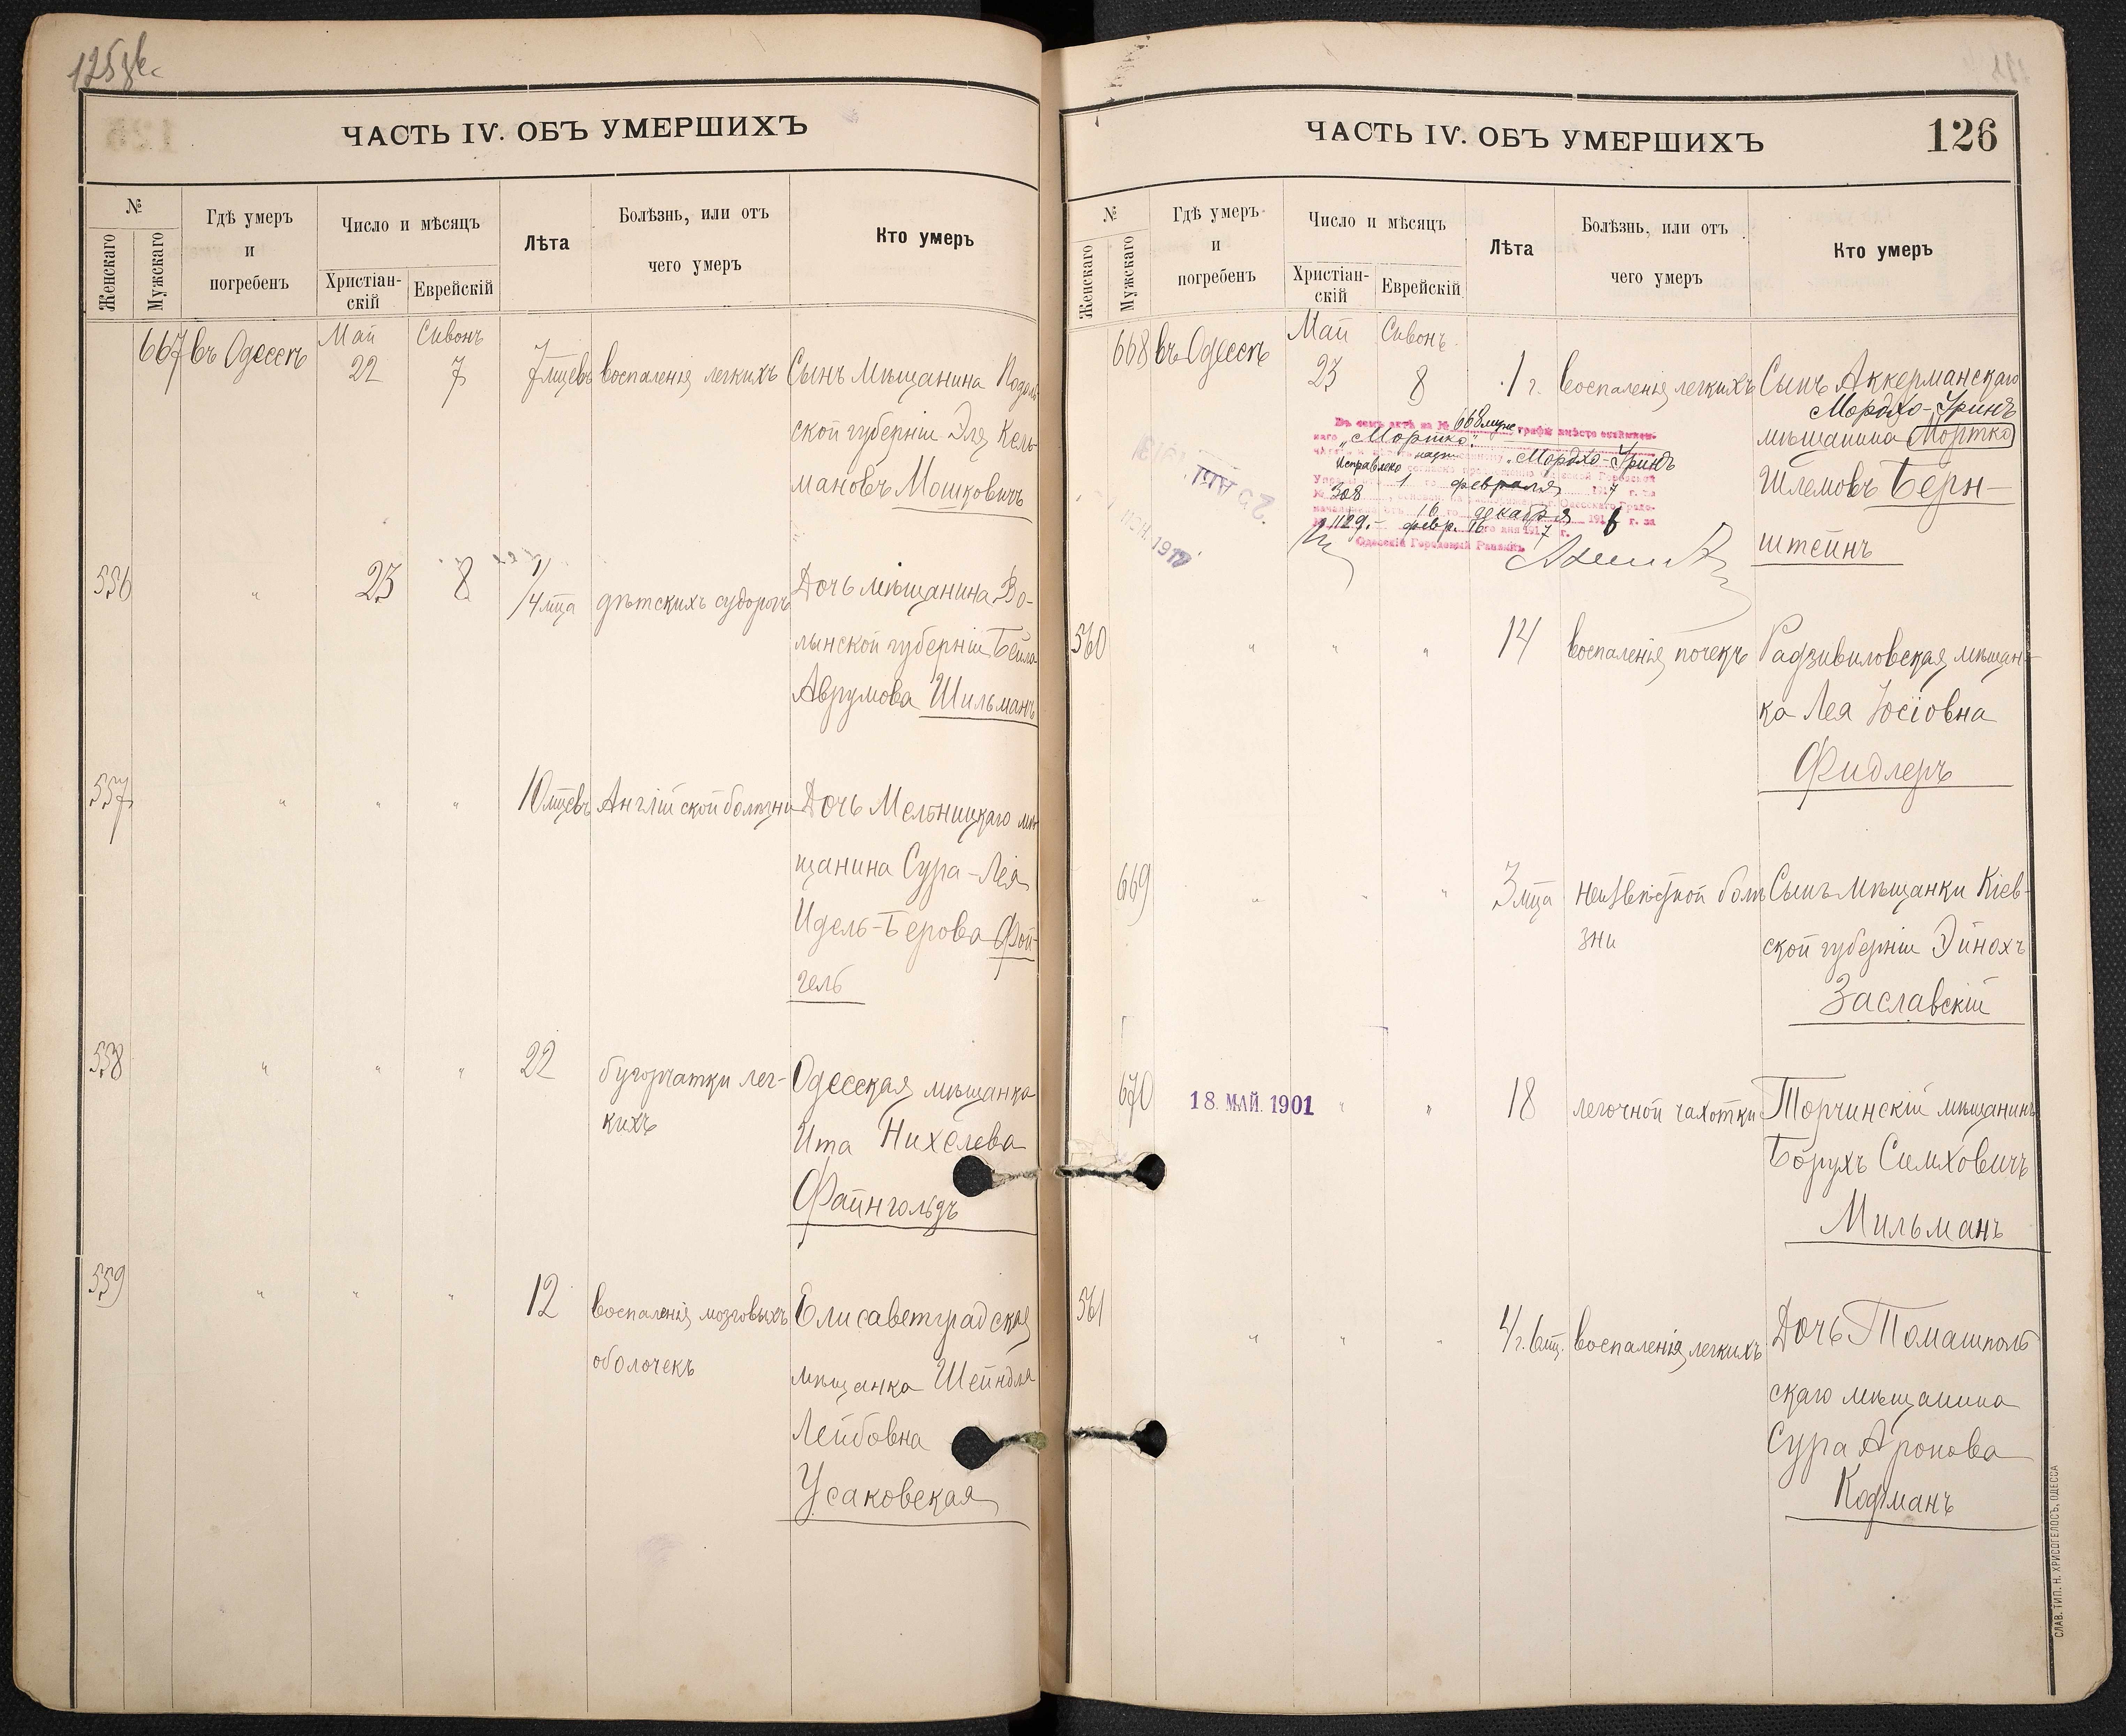 125 об.
ЧАСТЬ IV. ОБЪ УМЕРШИХЪ
№
Женскаго
Мужскаго
Гдѣ умеръ
и
погребенъ
Число и мѣсяцъ
Христіан-
скій
Еврейскій
Лѣта
Болѣзнь, или отъ
чего умеръ
Кто умеръ
Май Сивонъ
667 въ Одессѣ 22 7 7 мцевъ воспаленія легкихъ Сынъ мѣщанина Подоль
ской губерніи Эля Кель-
мановъ Мошковичъ
556 " 23 8 1/4 мца дѣтскихъ судорогъ Дочь мѣщанина Во-
лынской губерніи Бейла
Аврумова Шильманъ
557 " " " 10 мцевъ Англійской болѣзни Дочь Мельницкаго мѣ
щанина Сура-Лея
Идель-Берова Фой-
гель
558 " " " 22 бугорчатки лег- Одесская мѣщанка
кихъ Ита Нихелева
Файнгольдъ
559 " " " 12 воспаленія мозговыхъ Елисаветградская
оболочекъ мѣщанка Шейндля
Лейбовна
Усаковская
ЧАСТЬ IV. ОБЪ УМЕРШИХЪ
126
№
Женскаго
Мужскаго
Гдѣ умеръ
и
погребенъ
Число и мѣсяцъ
Христіан-
скій
Еврейскій
Лѣта
Болѣзнь, или отъ
чего умеръ
Кто умеръ
Май Сивонъ
668 въ Одессѣ 23 8 1 г. воспаленія легкихъ Сынъ Аккерманскаго
Мордхо-Уринъ
мѣщанина Мортко
Шлемовъ Берн-
штейнъ
Въ семъ актѣ за № 668 муж графѣ вмѣсто
"Мортко"
"Мордхо-Уринъ
Исправлено
1 февраля 1917 г. за
№ 308
16 декабря 1916 г. за
№ 1129. февр. 16 го дня 1917 г.
Одесскій Городовой Раввинъ
560 " " " 14 воспаленія почекъ Радзивиловская мѣщан-
ка Лея Іосіовна
Фидлеръ
669 " " " 3 мца неизвѣстной болѣ Сынъ мѣщанки Кіев-
зни ской губерніи Эйнохъ
Заславскій
670 18. МАЙ. 1901 " " 18 легочной чахотки Торчинскій мѣщанинъ
Борухъ Симховичъ
Мильманъ
561 " " " 4 г. 6 мц. воспаленія легкихъ Дочь Томашполь
скаго мѣщанина
Сура Аронова
Кофманъ
СЛАВ. ТИП. Н. ХРИСОГЕЛОСЪ, ОДЕССА